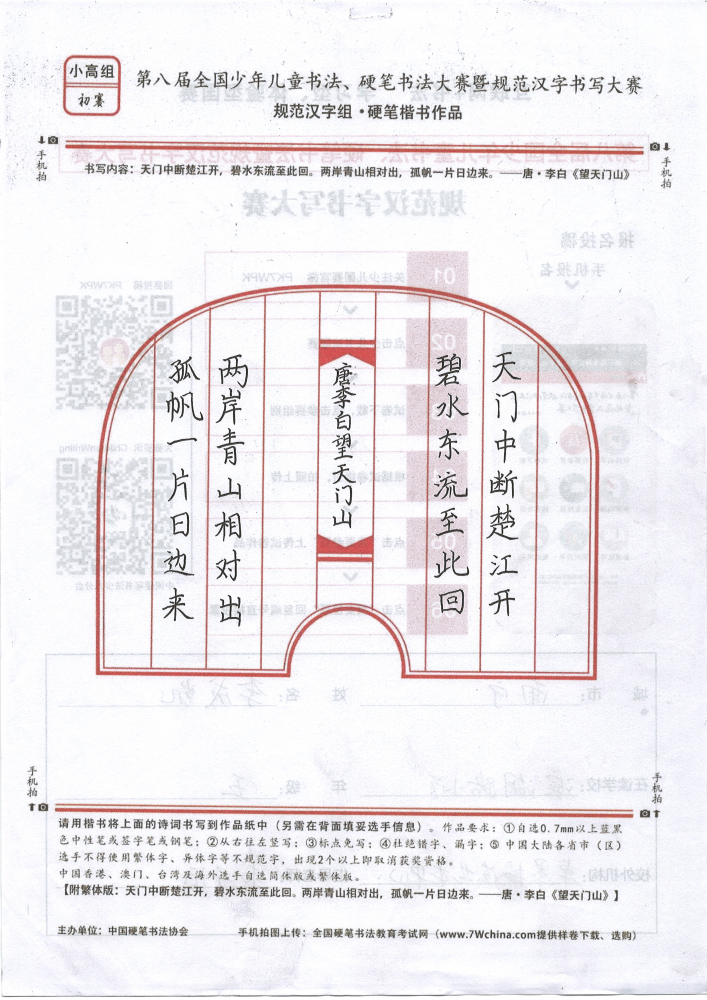 小高组
初赛
第八届全国少年儿童书法、硬笔书法大赛暨规范汉字书写大赛
规范汉字组·硬笔楷书作品
手机拍
手机拍
书写内容：天门中断楚江开，碧水东流至此回。两岸青山相对出，孤帆一片日边来。——唐·李白《望天门山》
天门中断楚江开
碧水东流至此回
唐李白望天门山
两岸青山相对出
孤帆一片日边来
手机拍
手机拍
请用楷书将上面的诗词书写到作品纸中（另需在背面填妥选手信息）。作品要求：①自选0.7mm以上蓝黑
色中性笔或签字笔或钢笔；②从右往左竖写；③标点免写；④杜绝错字、漏字；⑤ 中国大陆各省市（区）
选手不得使用繁体字、异体字等不规范字，出现2个以上即取消获奖资格。
中国香港、澳门、台湾及海外选手自选简体版或繁体版。
【附繁体版：天门中断楚江开，碧水东流至此回。两岸青山相对出，孤帆一片日边来。——唐·李白《望天门山》】
主办单位：中国硬笔书法协会 手机拍图上传：全国硬笔书法教育考试网（www.7Wchina.com提供样卷下载、选购）